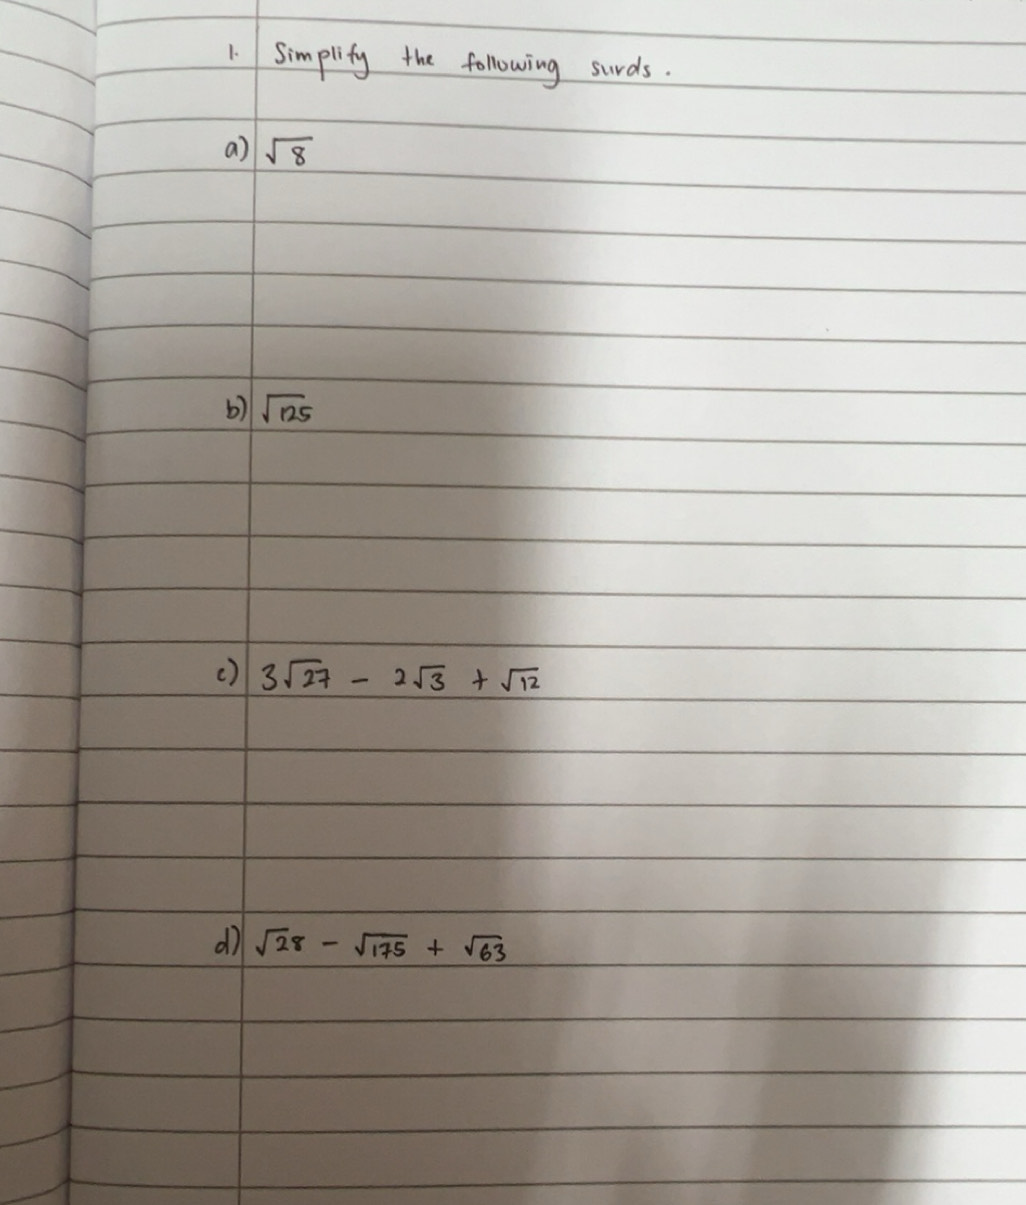 1. Simplify the following surds.
a) √8
b) √125
c) 3√27 - 2√3 + √12
d) √28 - √175 + √63